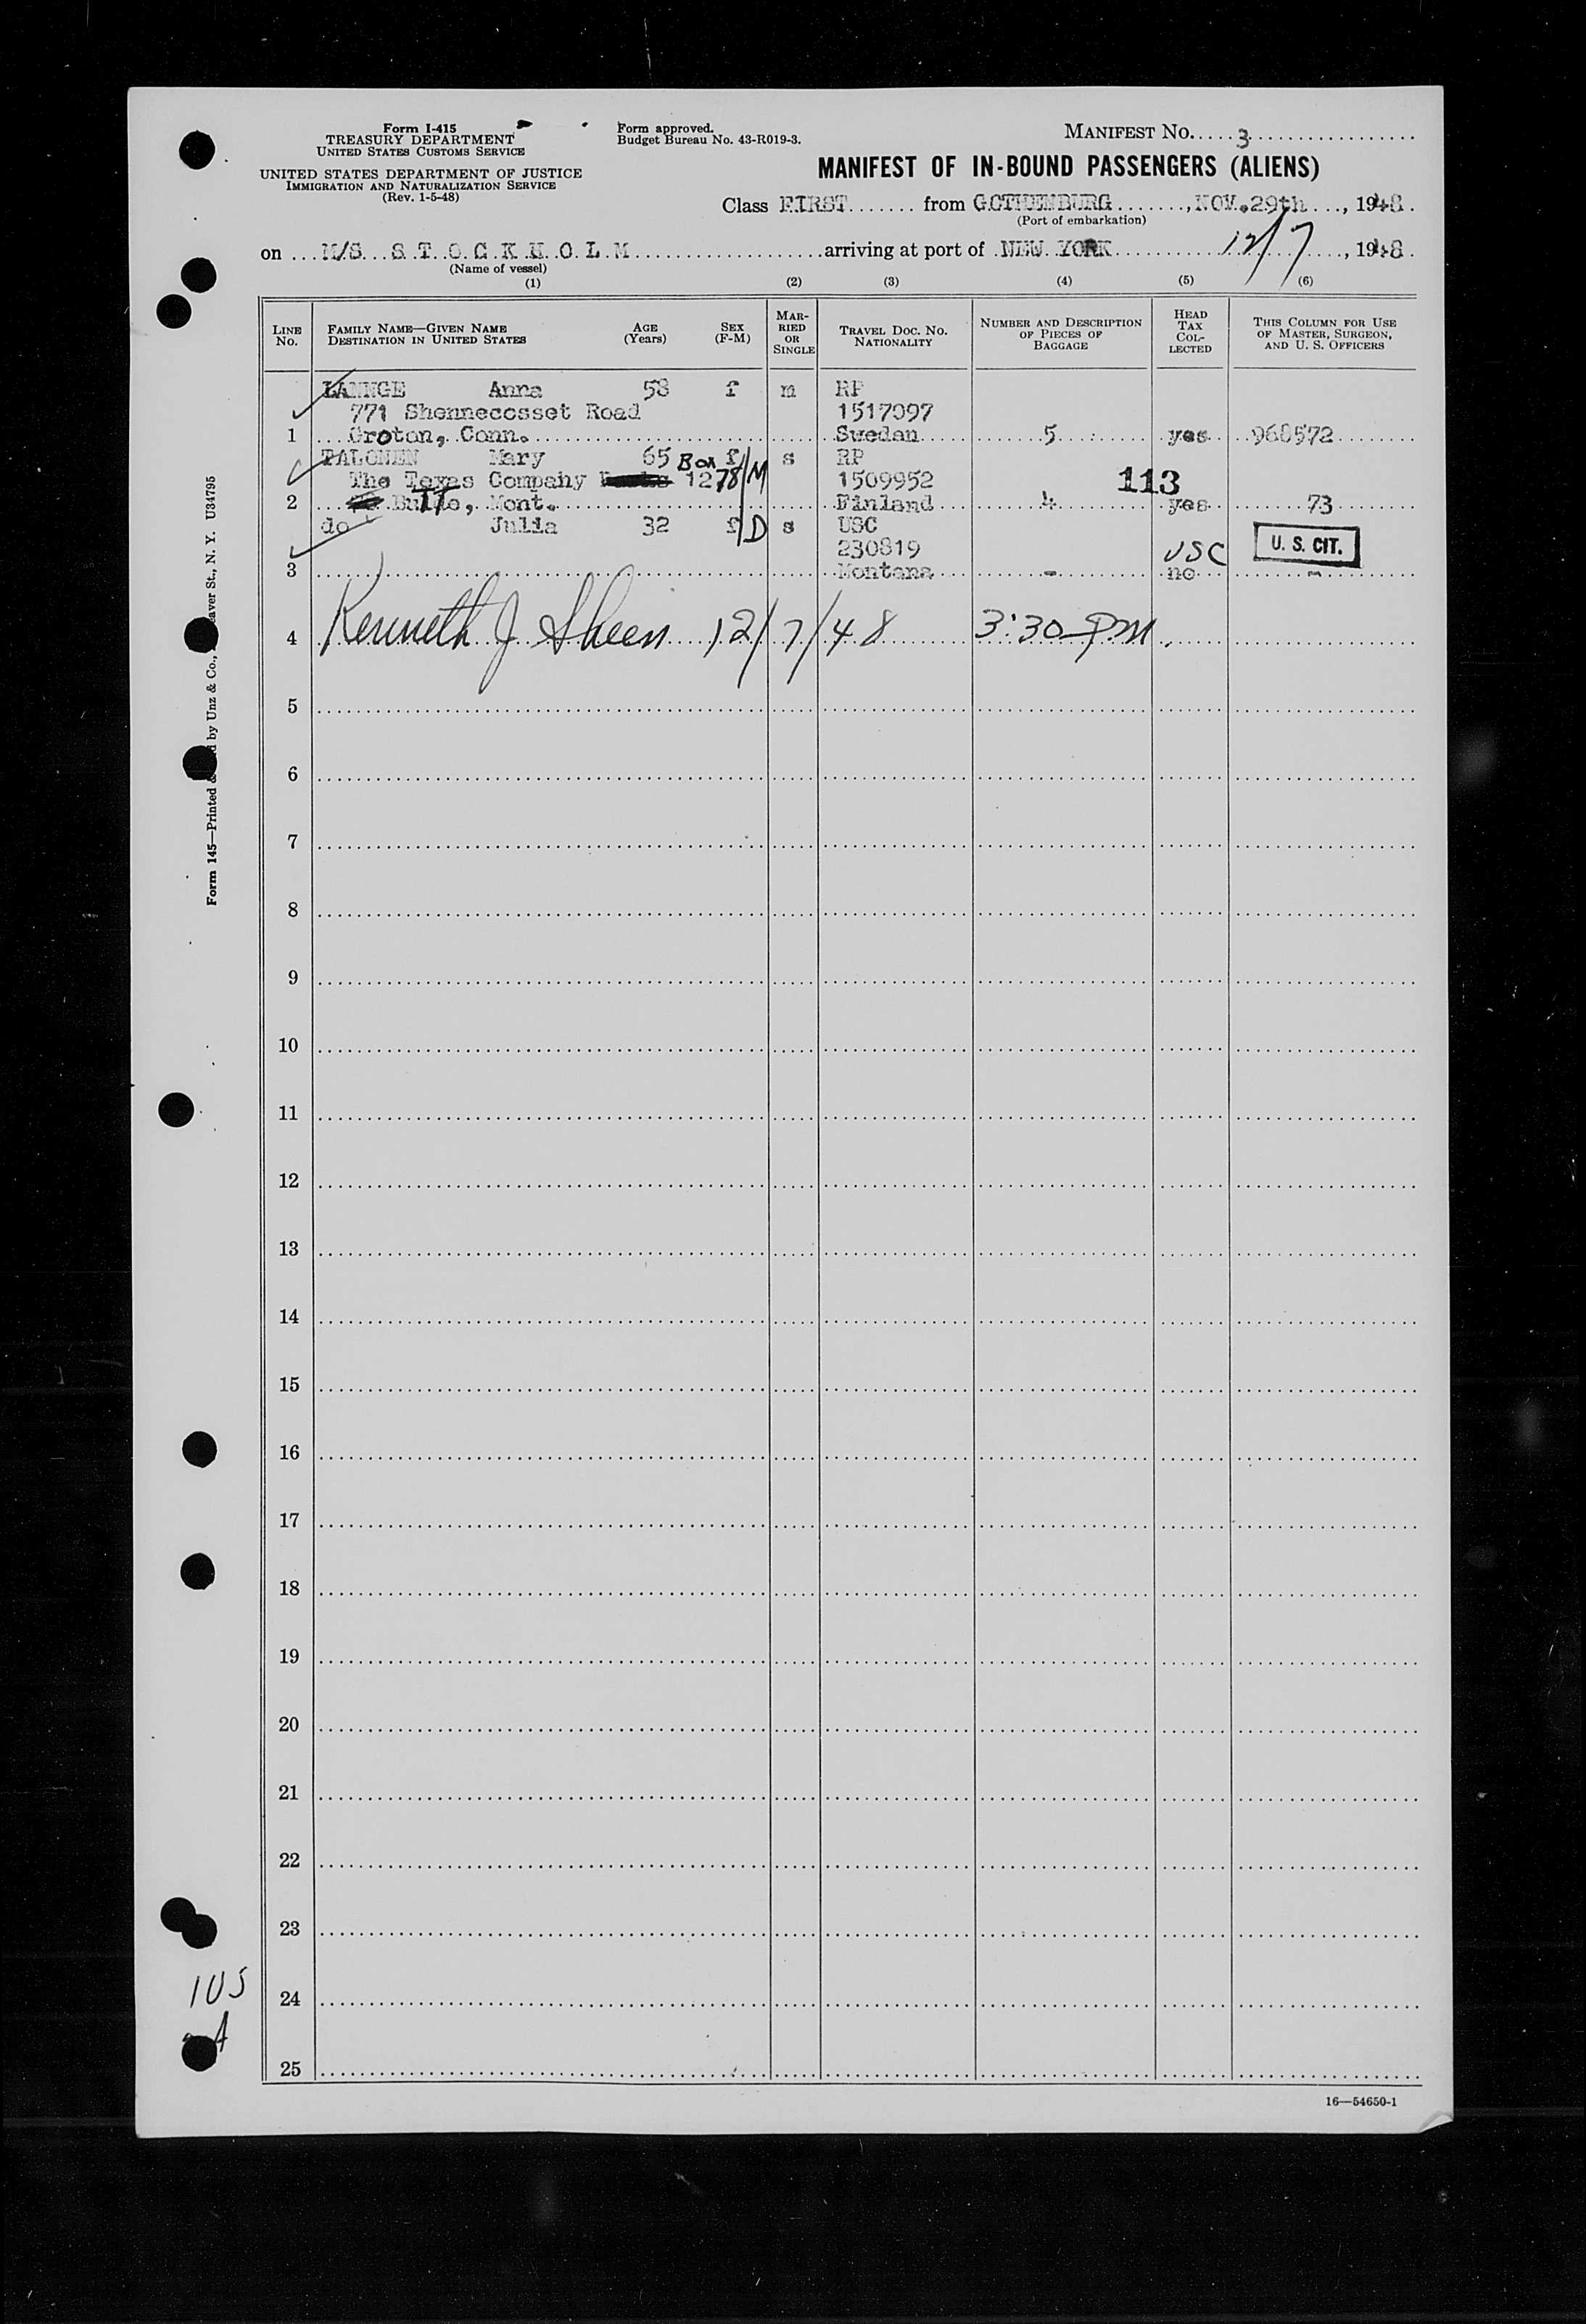 Form I-415
TREASURY DEPARTMENT
UNITED STATES CUSTOMS SERVICE
UNITED STATES DEPARTMENT OF JUSTICE
IMMIGRATION AND NATURALIZATION SERVICE
(Rev. 1-5-48)
Form approved.
Budget Bureau No. 43-R019-3.
MANIFEST No. 3
MANIFEST OF IN-BOUND PASSENGERS (ALIENS)
Class FIRST from GOTHENBURG, NOV. 29th, 1948
(Port of embarkation)
on M/S S T O C K H O L M arriving at port of NEW YORK 12/7, 1948
(Name of vessel)
(1) (2) (3) (4) (5) (6)
LINE No. FAMILY NAME—GIVEN NAME DESTINATION IN UNITED STATES AGE (Years) SEX (F-M) MARRIED OR SINGLE TRAVEL DOC. NO. NATIONALITY NUMBER AND DESCRIPTION OF PIECES OF BAGGAGE HEAD TAX COLLECTED THIS COLUMN FOR USE OF MASTER, SURGEON, AND U. S. OFFICERS
LANNGE Anna 58 f m RP
771 Shennecosset Road 1517097
1 Groton, Conn. Sweden 5 yes 968572
TALONEN Mary 65 f/M s RP
The Texas Company Box 1278 1509952 113
2 Butte, Mont. Finland 4 yes 73
do Julia 32 f/D s USC
230819 USC U. S. CIT.
3 Montana - no -
4 Kenneth J Sheen 12/7/48 3:30 PM
5
6
7
8
9
10
11
12
13
14
15
16
17
18
19
20
21
22
23
24
25
16—54650-1
Form 145—Printed by Unz & Co., eaver St., N. Y. U34795
1US
A